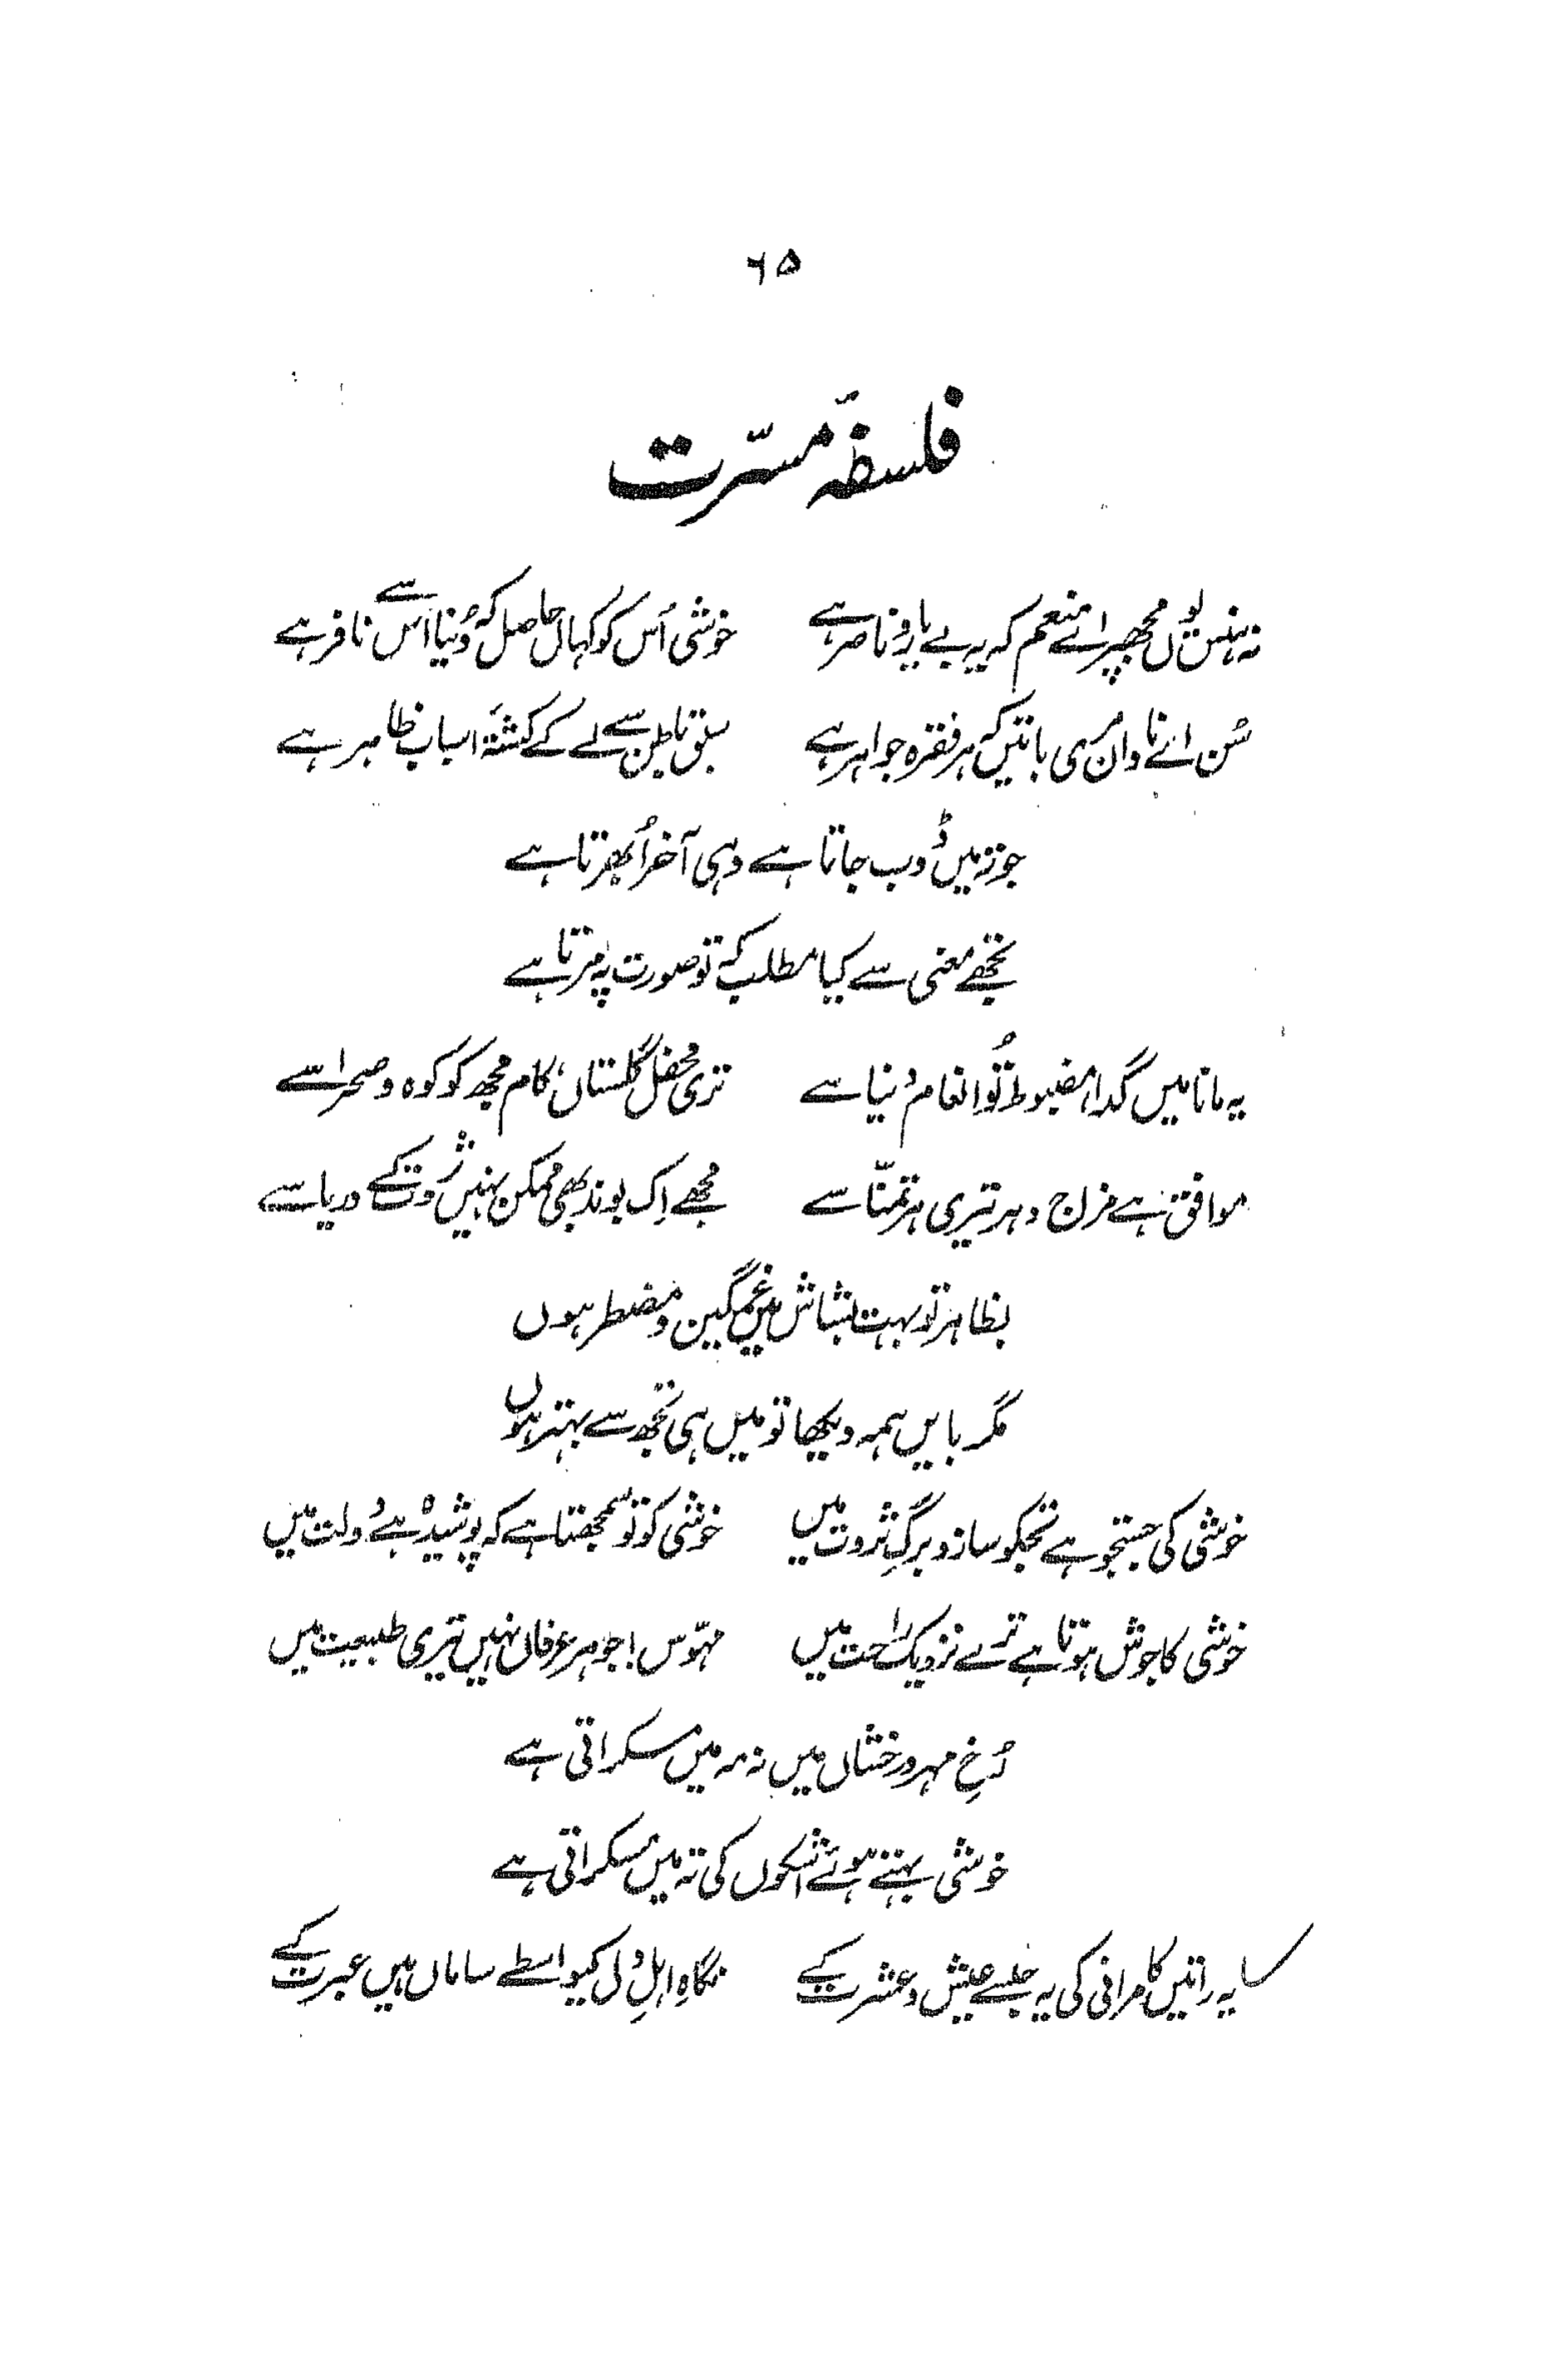 ۶۵
فلسفۂ مسرّت
نہ ہنس یوں مجھپر اے منعم کہ یہ بے یار و ناصر ہے خوشی اُس کو کہاں حاصل کہ دُنیا اُس سے نافر ہے
سُن اے ناداں مری باتیں کہ ہر فقرہ جواہر ہے سبق باطن سے لے کے کشتۂ اسباب ظاہر ہے
جو تہ میں ڈوب جاتا ہے وہی آخر اُبھرتا ہے
تجھے معنی سے کیا مطلب کہ تو صورت پہ مرتا ہے
یہ مانا میں گدا، مضبوط تُو انعام دُنیا سے تری محفل گلستاں، کام مجھ کو کوہ و صحرا سے
موافق ہے مزاج دہر تیری ہر تمنّا سے مجھے اِک بوند بھی ممکن نہیں ثروت کے دریا سے
بظاہر تو بہت بشاش میں غمگین و مضطر ہوں
مگر بایں ہمہ دیکھا تو میں ہی تجھ سے بہتر ہوں
خوشی کی جستجو ہے تجکو ساز و برگِ ثروت میں خوشی کو تو سمجھتا ہے کہ پوشیدہ ہے دُولت میں
خوشی کا جوش ہوتا ہے ترے نزدیک راحت میں مہوّس! جوہر عرفاں نہیں تیری طبیعت میں
رُخِ مہر درخشاں میں نہ مہ میں مسکراتی ہے
خوشی بہتے ہوئے اشکوں کی تہ میں مسکراتی ہے
یہ راتیں کامرانی کی یہ جلسے عیش و عشرت کے نگاہِ اہلِ دل کیواسطے ساماں ہیں عبرت کے